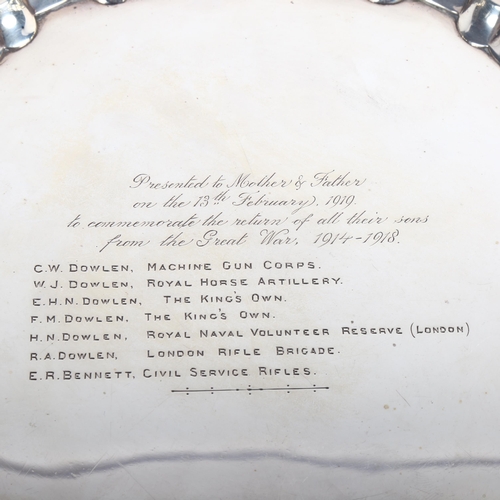 Presented to Mother & Father
on the 13th February, 1919.
to commemorate the return of all their sons
from the Great War, 1914-1918.
C.W. DOWLEN, MACHINE GUN CORPS.
W.J. DOWLEN, ROYAL HORSE ARTILLERY.
E.H.N. DOWLEN, THE KING'S OWN.
F.M. DOWLEN, THE KING'S OWN.
H.N. DOWLEN, ROYAL NAVAL VOLUNTEER RESERVE (LONDON)
R.A. DOWLEN, LONDON RIFLE BRIGADE.
E.R. BENNETT, CIVIL SERVICE RIFLES.